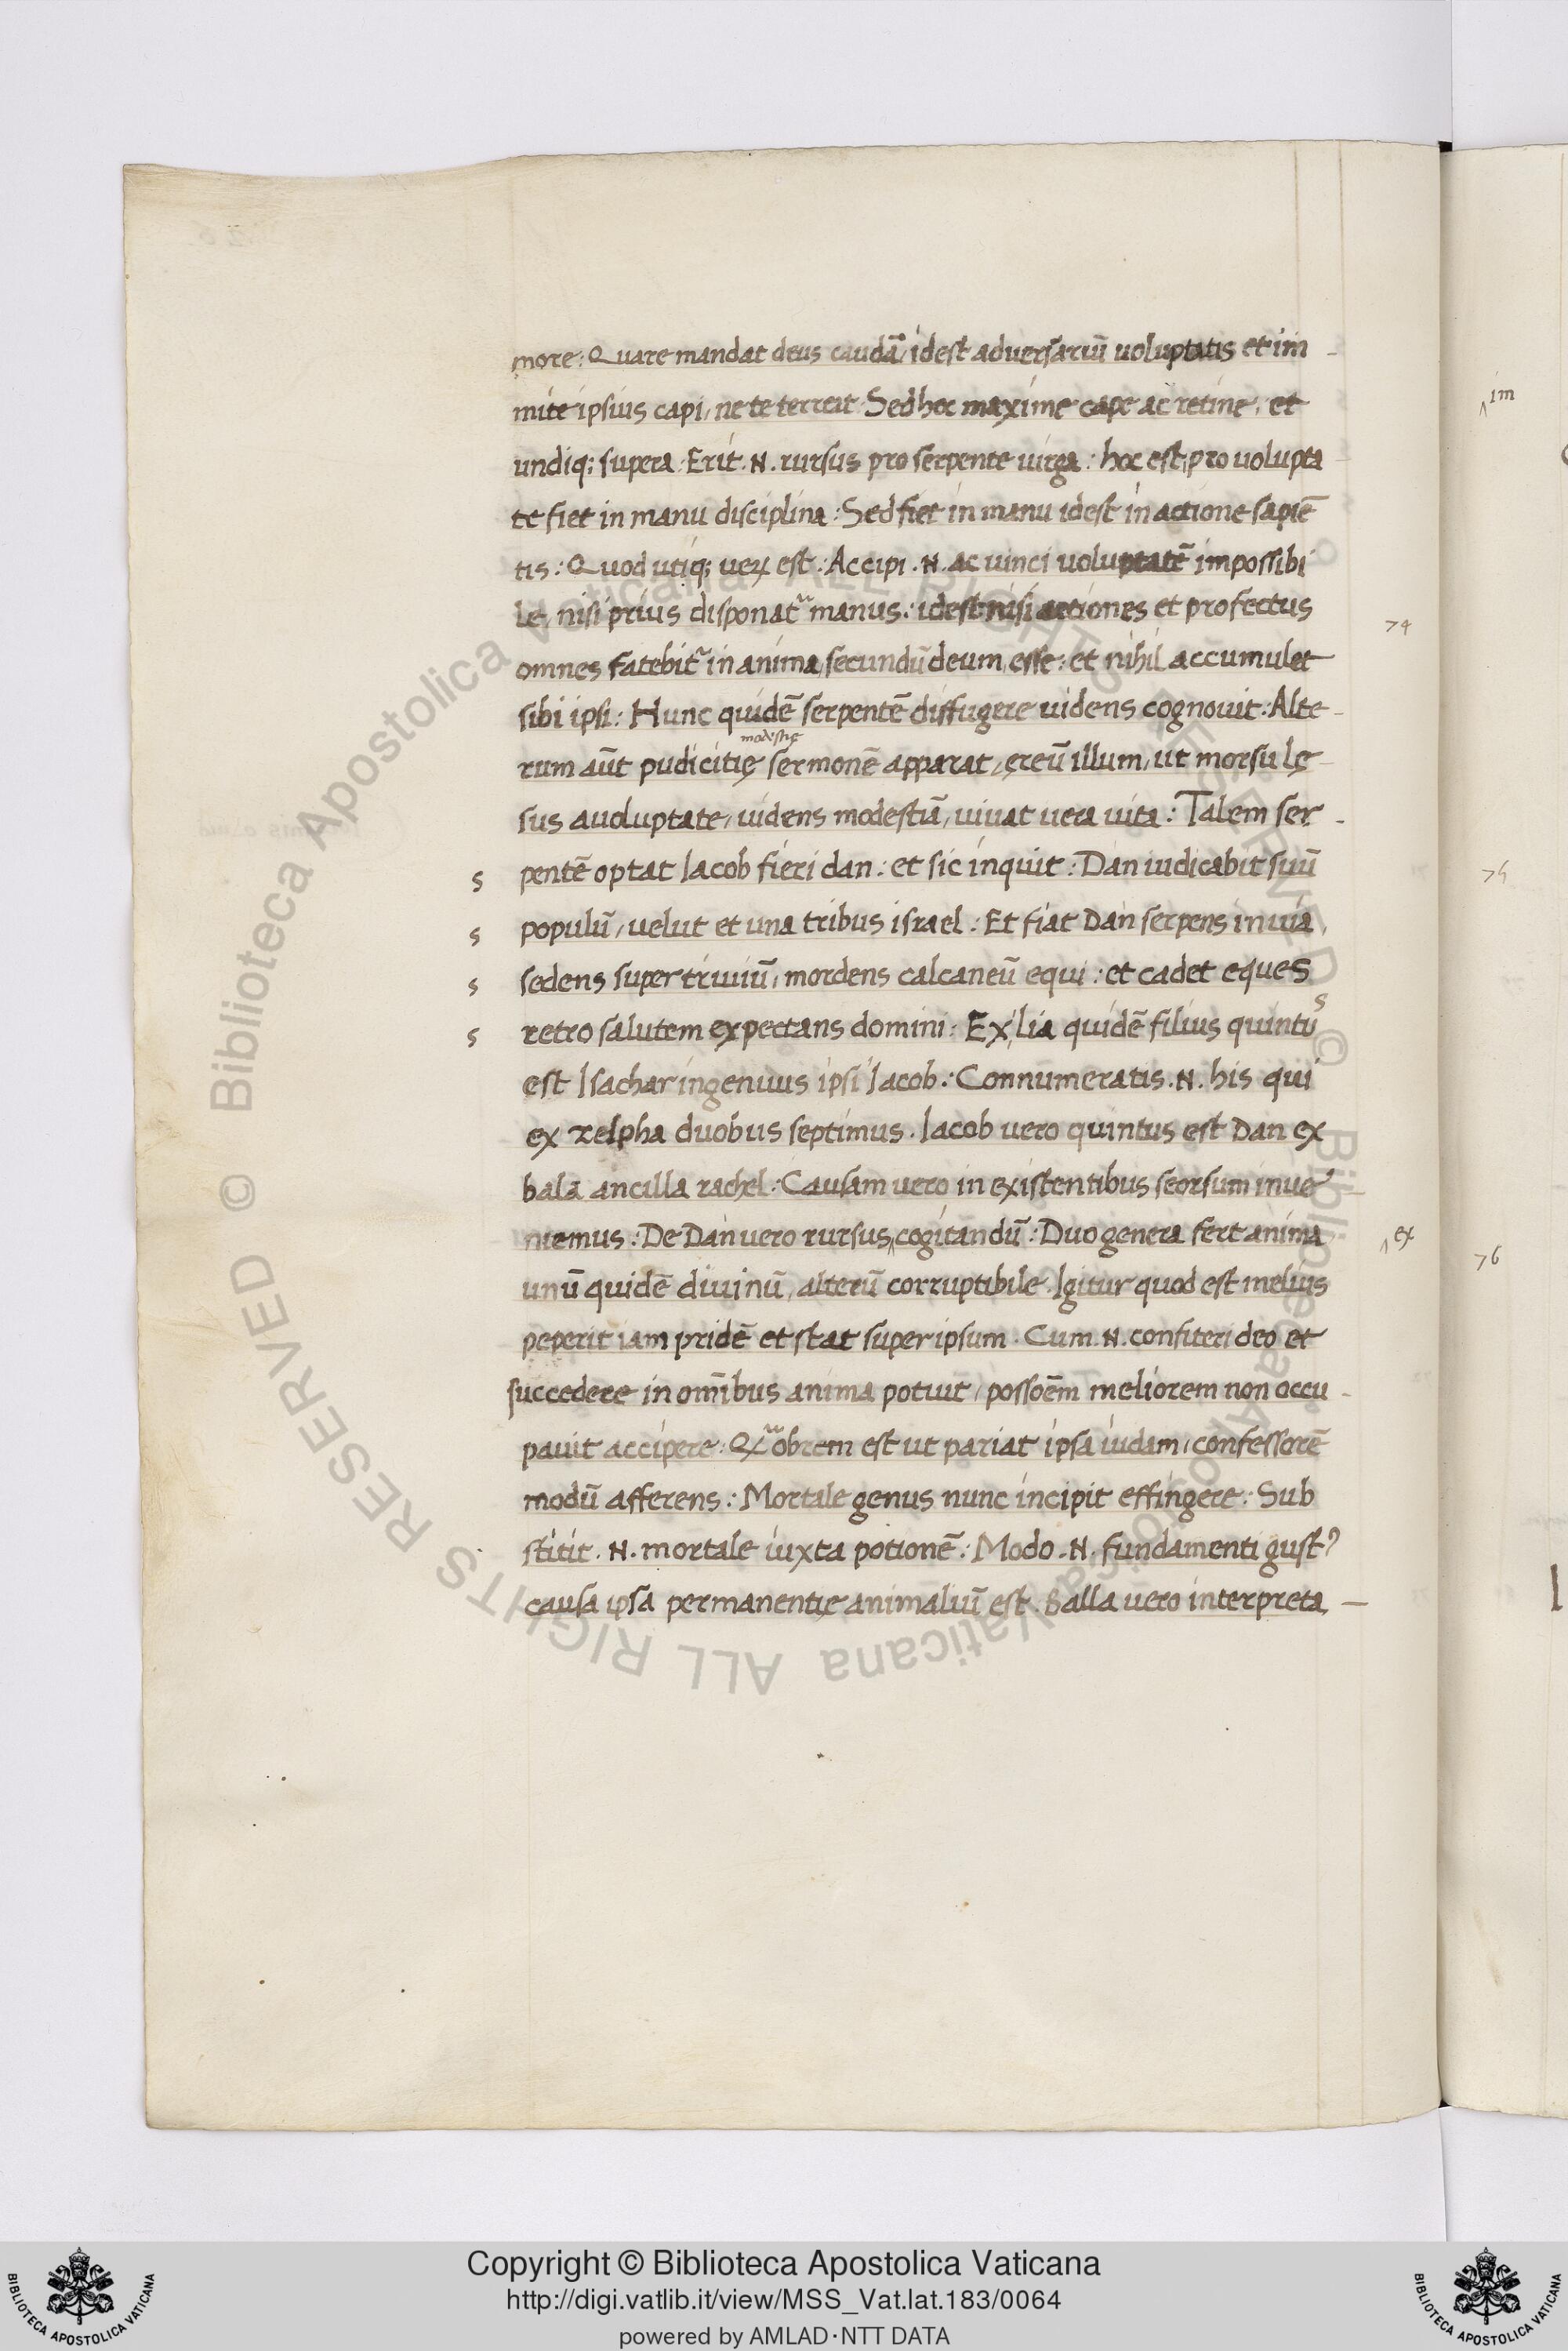 more: Quare mandat deus caudā, idest adversariū voluptatis et im-
mite ipsius capi, ne te terreat. Sed hoc maxime cape ac retine, et
undiq; supera. Erit .N. rursus pro serpente virga: hoc est, pro volupta-
te fiet in manu disciplina: Sed fiet in manu idest in actione sapiē
tis: Quod utiq; veꝝ est. Accipi .N. ac vinci voluptatē impossibi
le, nisi prius disponat᷑ manus: idest nisi actiones et profectus
omnes fatebit᷑ in anima, secundū deum, esse: et nihil accumulet
sibi ipsi: Hunc quidē serpentē diffugere videns cognovit: Alte-
modestię
rum aūt pudicitię sermonē apparat, ęreū illum, ut morsu lę-
sus a voluptate, videns modestiā, vivat vera vita: Talem ser-
s pentē optat Iacob fieri dan: et sic inquit: Dan iudicabit suū
s populū, velut et una tribus israel: Et fiat Dan serpens in via,
s sedens super triviū, mordens calcaneū equi: et cadet eques
s retro salutem expectans domini: Ex lia quidē filius quintus
est Isachar ingenuus ipsi Iacob: Connumeratis .N. his qui
ex zelpha duobus septimus. Iacob vero quintus est Dan ex
balā ancilla rachel: Causam vero in existentibus seorsum inve-
niemus: De Dan vero rursus ‸ cogitandū: Duo genera fert anima ‸ex
unū quidē divinū, alterū corruptibile. Igitur quod est melius
peperit iam pridē et stat super ipsum. Cum .N. confiteri deo et
succedere in omībus anima potuit, possoēm meliorem non occu-
pavit accipere: obrem est ut pariat ipsa iudam, confessorē
modū afferens: Mortale genus nunc incipit effingere: Sub
stitit .N. mortale iuxta potionē: Modo .N. fundamenti gustꝰ
causa ipsa permanentię animaliū est. Balla vero interpreta-
74
‸im
75
76
Copyright © Biblioteca Apostolica Vaticana
http://digi.vatlib.it/view/MSS_Vat.lat.183/0064
powered by AMLAD·NTT DATA
BIBLIOTECA APOSTOLICA VATICANA
BIBLIOTECA APOSTOLICA VATICANA
© Biblioteca Apostolica Vaticana ALL RIGHTS RESERVED © Biblioteca Apostolica Vaticana ALL RIGHTS RESERVED